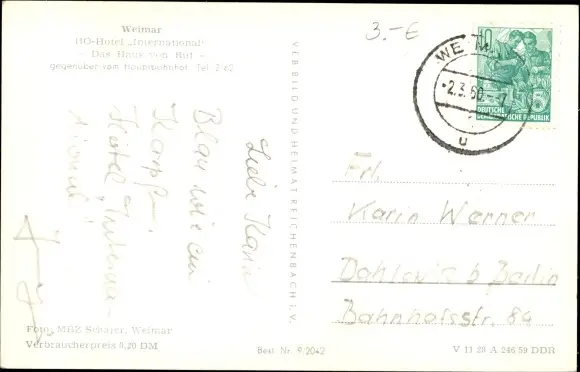 Weimar
HO-Hotel „International“
- Das Haus von Ruf -
gegenüber vom Hauptbahnhof Tel. 2162
3.-€
WEIMAR
-2.3.60.-
u
10
5
DEUTSCHE
DEMOKRATISCHE REPUBLIK
VEB BILD UND HEIMAT REICHENBACH I. V.
Liebe Karin
Blau wie ein
Karpf-
Hotel „Interna-
tional“
Frl.
Karin Werner
Dahlwitz b Berlin
Bahnhofsstr. 89
Foto: MBZ Schäfer, Weimar
Verbraucherpreis 0,20 DM
Best. Nr. 9/2042
V 11 28 A 246 59 DDR